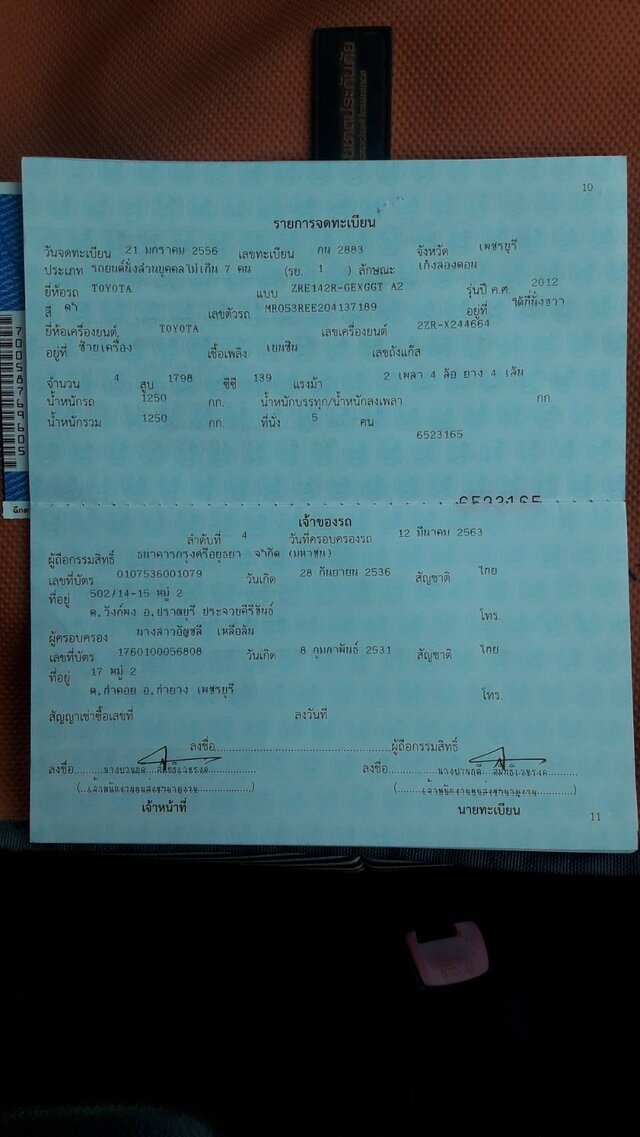 10
รายการจดทะเบียน
วันจดทะเบียน 21 มกราคม 2556 เลขทะเบียน กน 2883 จังหวัด เพชรบุรี
ประเภท รถยนต์นั่งส่วนบุคคลไม่เกิน 7 คน (รย. 1 ) ลักษณะ เก๋งสองตอน
ยี่ห้อรถ TOYOTA แบบ ZRE142R-GEXGGT A2 รุ่นปี ค.ศ. 2012
สี ดำ เลขตัวรถ MR053REE204137189 อยู่ที่ ใต้ที่นั่งขวา
ยี่ห้อเครื่องยนต์ TOYOTA เลขเครื่องยนต์ 2ZR-X244664
อยู่ที่ ซ้ายเครื่อง เชื้อเพลิง เบนซิน เลขถังแก๊ส
จำนวน 4 สูบ 1798 ซีซี 139 แรงม้า 2 เพลา 4 ล้อ ยาง 4 เส้น
น้ำหนักรถ 1250 กก. น้ำหนักบรรทุก/น้ำหนักลงเพลา กก.
น้ำหนักรวม 1250 กก. ที่นั่ง 5 คน
6523165
6523165
เจ้าของรถ
ลำดับที่ 4 วันที่ครอบครองรถ 12 มีนาคม 2563
ผู้ถือกรรมสิทธิ์ ธนาคารกรุงศรีอยุธยา จำกัด (มหาชน)
เลขที่บัตร 0107536001079 วันเกิด 28 กันยายน 2536 สัญชาติ ไทย
ที่อยู่ 502/14-15 หมู่ 2
ต.วังก์พง อ.ปราณบุรี ประจวบคีรีขันธ์ โทร.
ผู้ครอบครอง นางสาวอัญชลี เหลือล้น
เลขที่บัตร 1760100056808 วันเกิด 8 กุมภาพันธ์ 2531 สัญชาติ ไทย
ที่อยู่ 17 หมู่ 2
ต.ท่าคอย อ.ท่ายาง เพชรบุรี โทร.
สัญญาเช่าซื้อเลขที่ ลงวันที่
ลงชื่อ ผู้ถือกรรมสิทธิ์
ลงชื่อ ลงชื่อ
(เจ้าพนักงานขนส่งชำนาญงาน) (เจ้าพนักงานขนส่งชำนาญงาน)
เจ้าหน้าที่ นายทะเบียน
11